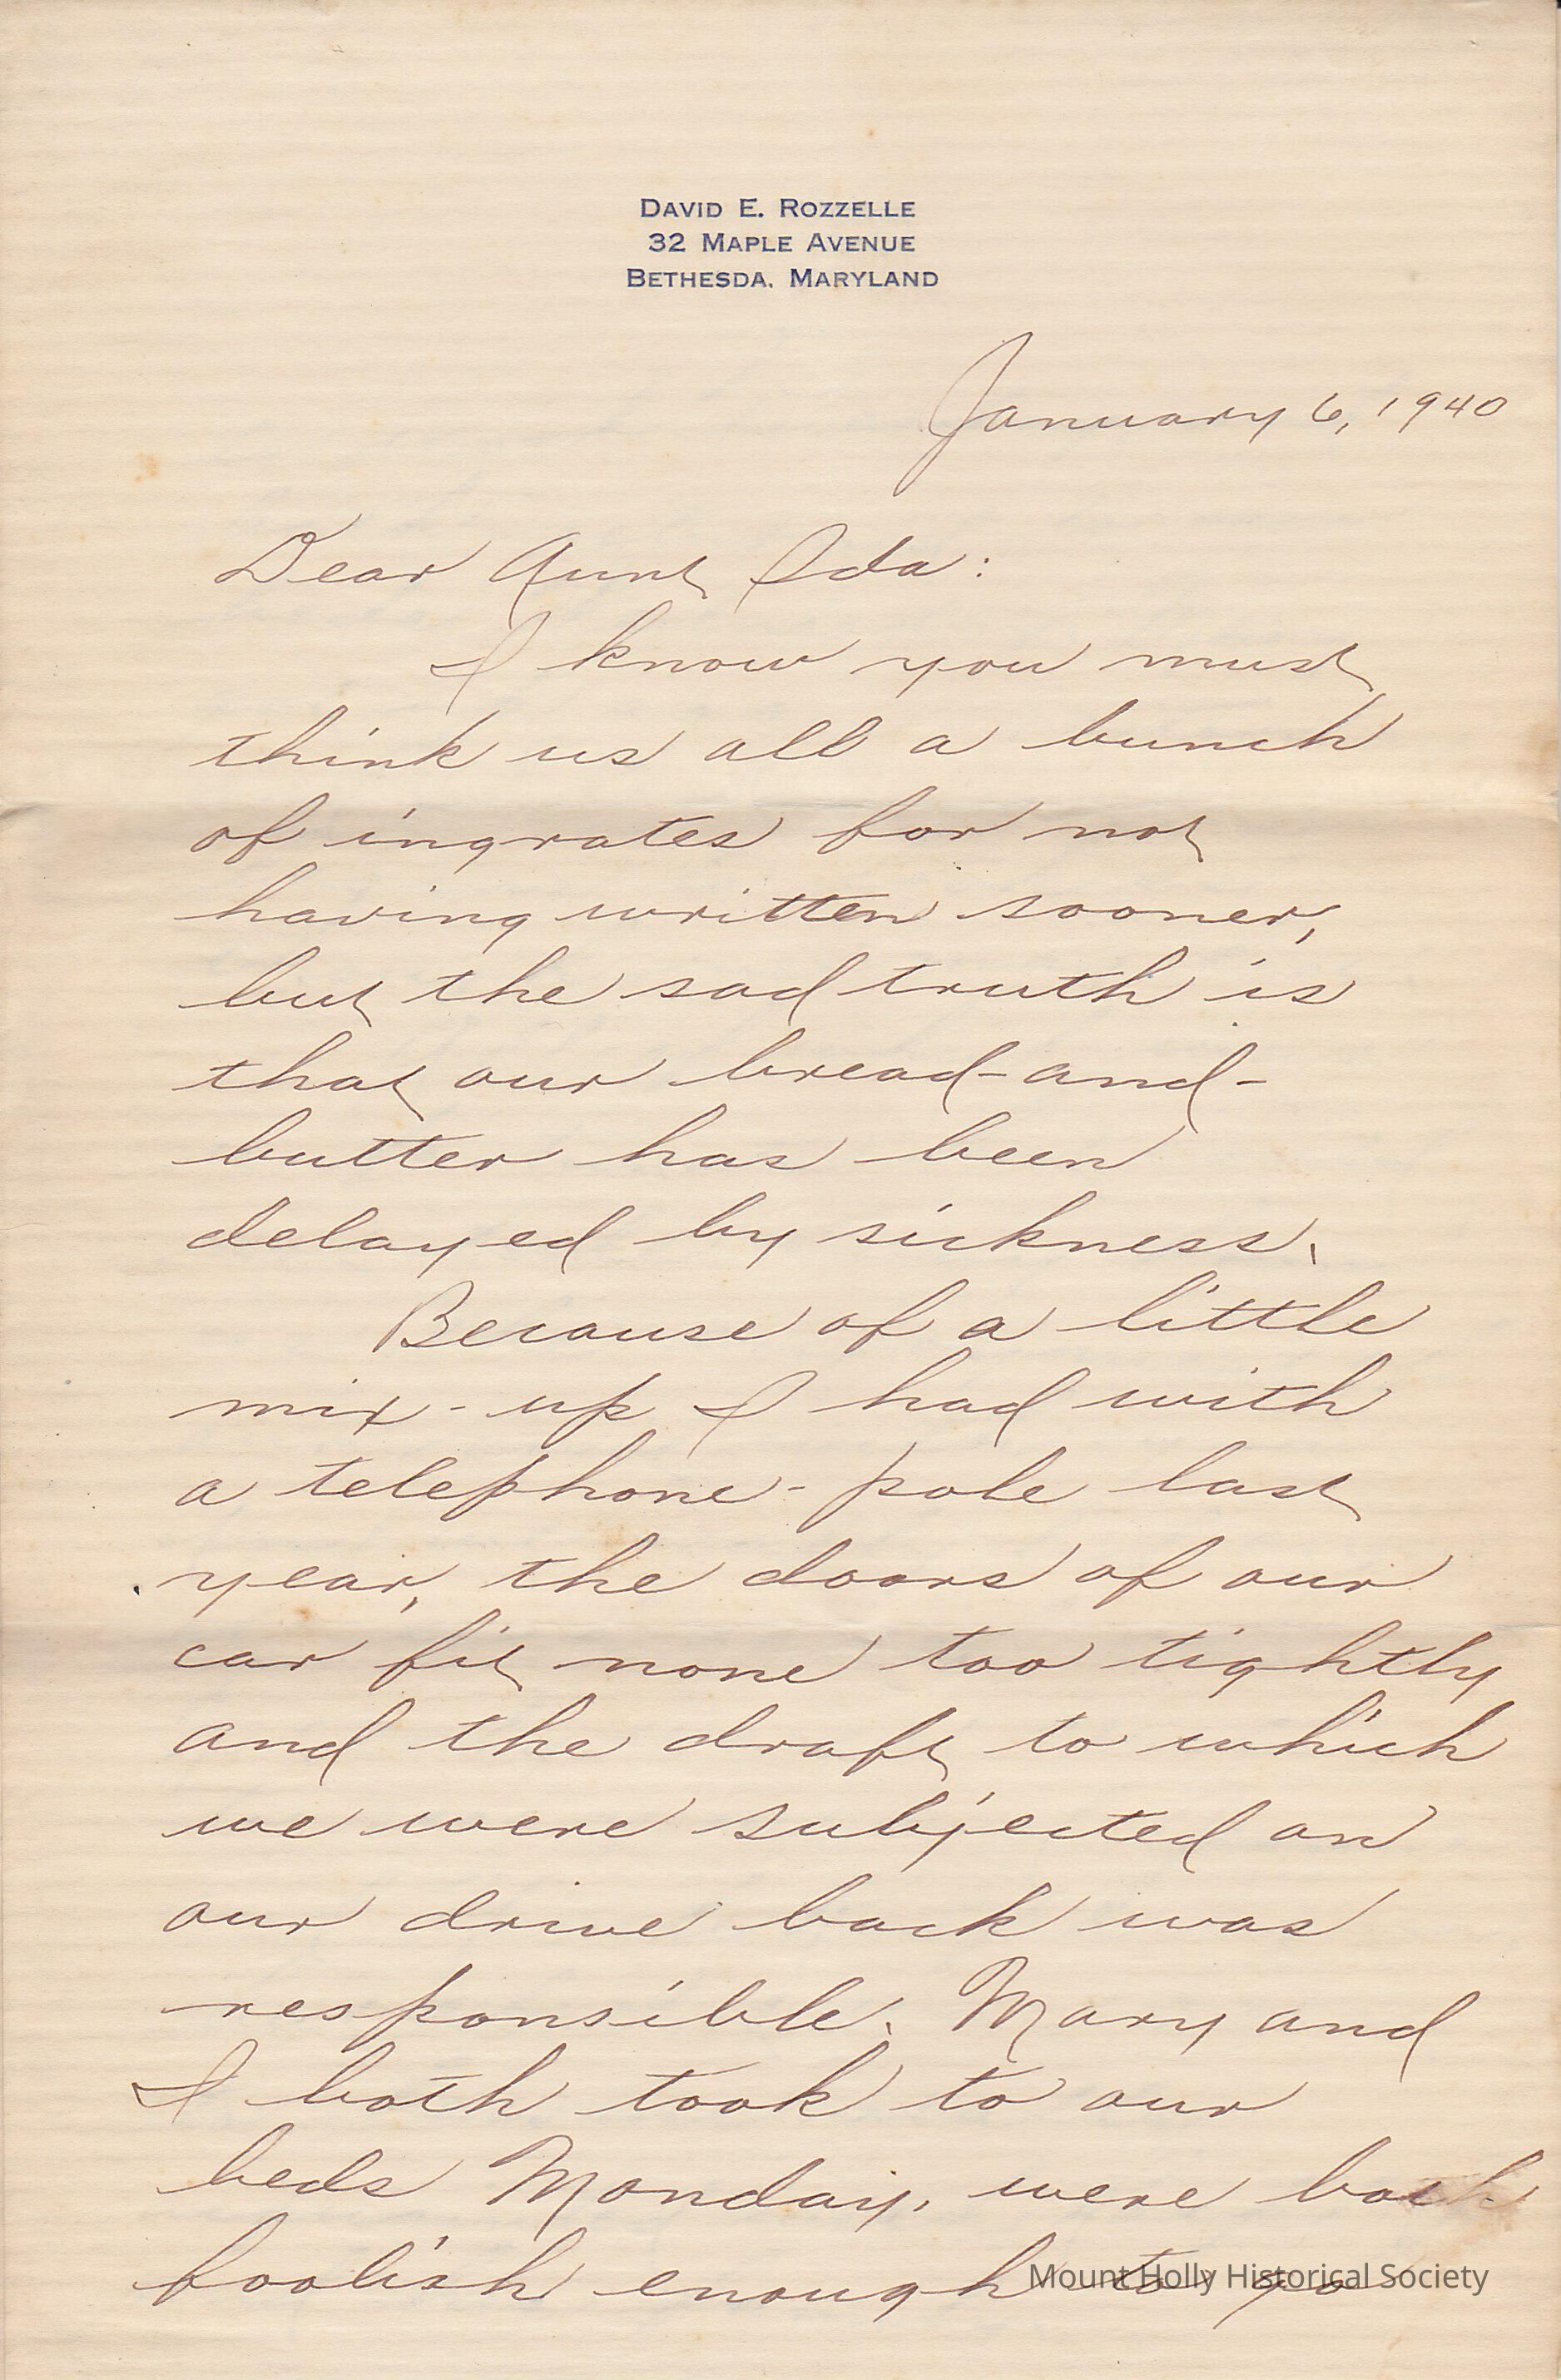 DAVID E. ROZZELLE
32 MAPLE AVENUE
BETHESDA, MARYLAND
January 6, 1940
Dear Aunt Ida:
I know you must
think us all a bunch
of ingrates for not
having written sooner,
but the sad truth is
that our bread-and-
butter has been
delayed by sickness.
Because of a little
mix-up I had with
a telephone-pole last
year, the doors of our
car fit none too tightly
and the draft to which
we were subjected on
our drive back was
responsible. Mary and
I both took to our
beds Monday, were both
foolish enough to go
Mount Holly Historical Society